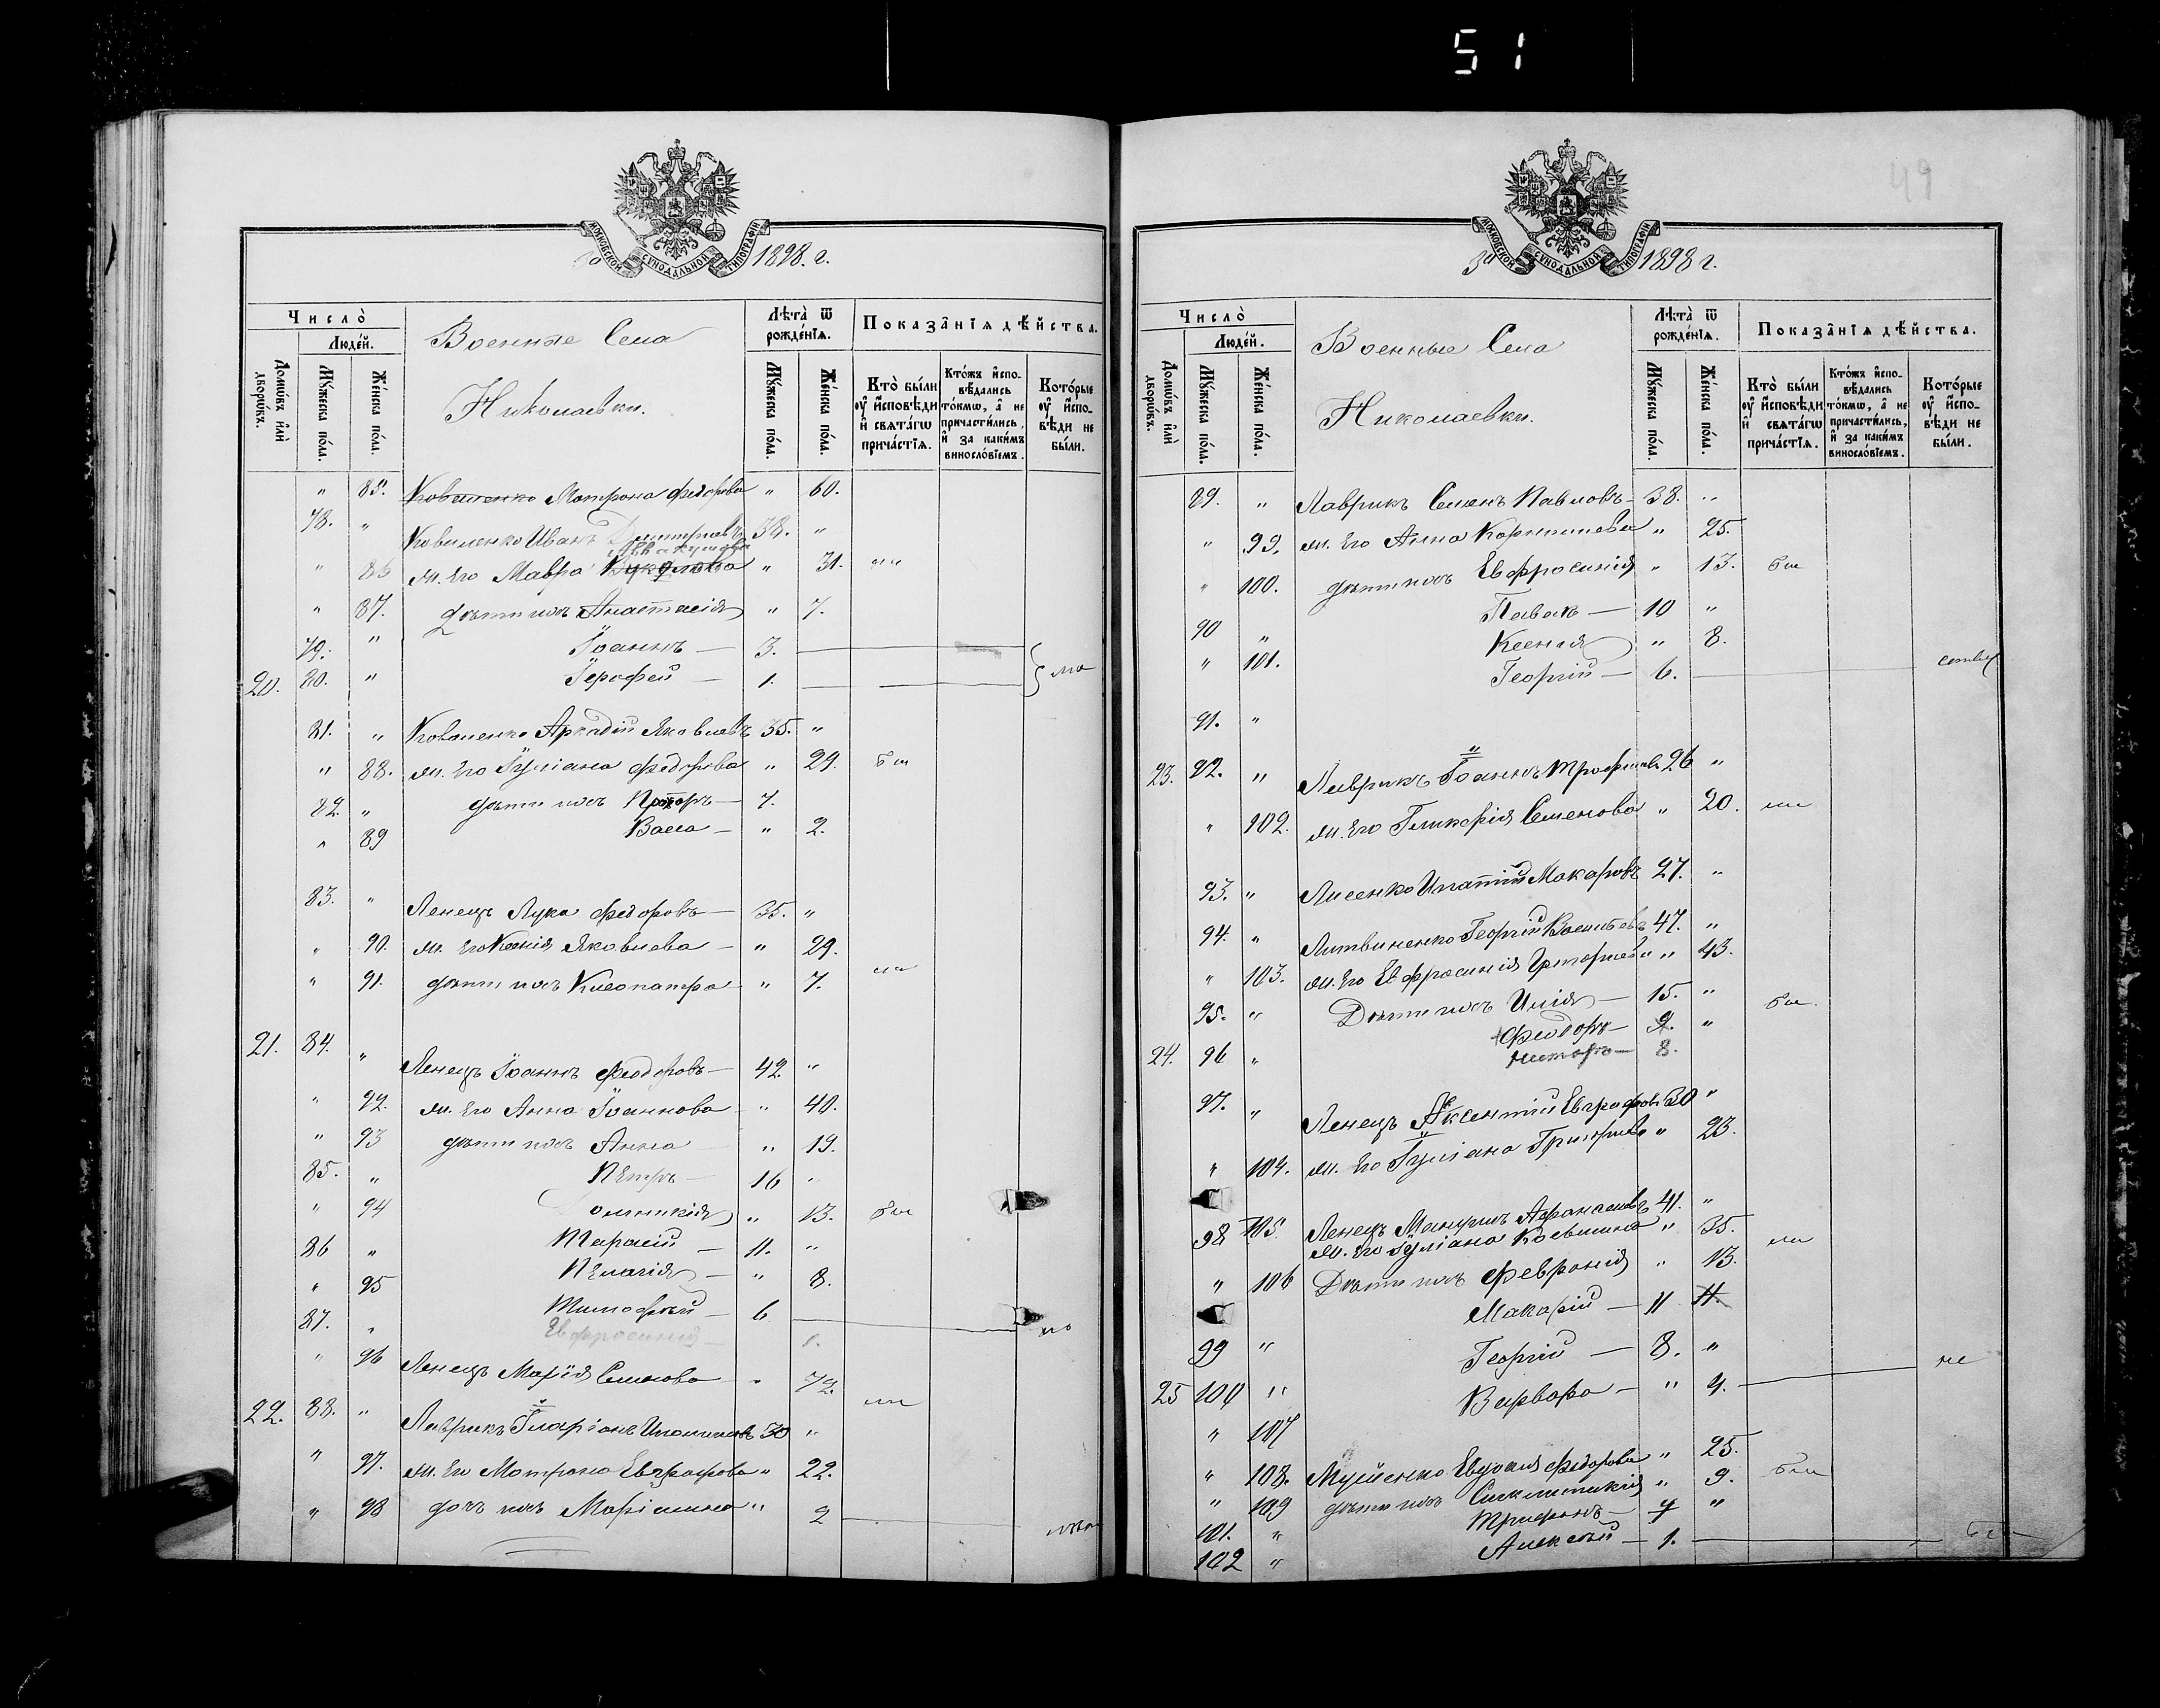 51
49
МОСКОВСКОЙ СѴНОДАЛЬНОЙ ТИПОГРАФІИ
1898. г.
Число̀
Людей.
Домѡвъ и҆лѝ дворѡвъ.
Мꙋ́жеска по́ла.
Же́нска по́ла.
Военные Села
Николаевки.
Лѣта̀ ѿ рожде́нїѧ.
Мꙋ́жеска по́ла.
Же́нска по́ла.
Показа̂нїѧ дѣ́йства.
Кто̀ бы́ли ᲂу҆ и҆сповѣди и҆ свѧта́гѡ прича́стїѧ.
Кто́жъ и҆спо- вѣдались то́кмѡ, а҆ не причасти́лись, и҆ за каки́мъ винослóвїемъ.
Кото́рые ᲂу҆ и҆спо- вѣди не бы́ли.
" 85. Коваленко Матрона Федорова " 60.
78. " Коваленко Иванъ Дмитріевъ 38. "
" 86 ж. Его Мавра Аввакумова " 31.
" 87. дѣти ихъ Анастасія " 7.
79. " Іоаннъ — 3.
20. 80. " Іерофей — 1.
81. " Коваленко Аркадій Яковлевъ 35. "
" 88. ж. Его Іуліана Федорова " 29. бы
82. " дѣти ихъ — 7.
" 89 Васса — " 2.
83. " Ленецъ Лука Федоровъ — 35. "
" 90. ж. Его Ксенія Яковлева — " 29.
" 91. дѣти ихъ Клеопатра " 7. ли
21. 84. " Ленецъ Іоаннъ Феодоровъ — 42. "
" 92. ж. Его Анна Іоаннова — " 40.
" 93 дѣти ихъ Анна — " 19.
85. " Петръ — 16 "
" 94 " 13. бы
86 " Тарасій — 11. "
" 95 Пелагія — " 8.
87. " Тимофѣй — 6
Евфросинія — 1.
" 96 Ленецъ Марія Семенова " 72.
22. 88. " Лаврикъ Иларіонъ 30 " ли
" 97. ж. Его Матрона Евграфова " 22.
" 98 дочь ихъ Маріамна " 2
МОСКОВСКОЙ СѴНОДАЛЬНОЙ ТИПОГРАФІИ
За 1898 г.
Число̀
Людей.
Домѡвъ и҆лѝ дворѡвъ.
Мꙋ́жеска по́ла.
Же́нска по́ла.
Военные Села
Николаевки.
Лѣта̀ ѿ рожде́нїѧ.
Мꙋ́жеска по́ла.
Же́нска по́ла.
Показа̂нїѧ дѣ́йства.
Кто̀ бы́ли ᲂу҆ и҆сповѣди и҆ свѧта́гѡ прича́стїѧ.
Кто́жъ и҆спо- вѣдались то́кмѡ, а҆ не причасти́лись, и҆ за каки́мъ винослóвїемъ.
Кото́рые ᲂу҆ и҆спо- вѣди не бы́ли.
89. " Лаврикъ Семенъ Павловъ — 38. "
" 99. ж. Его Анна Корнилиева " 25.
" 100. дѣти ихъ Евфросинія " 13. бы
90 " Павелъ — 10 "
" 101. Ксенія " 8.
91. " Георгій — 6.
23. 92. " Лаврикъ Іоаннъ Трофимовъ 26 "
" 102. ж. Его Гликерія Семенова " 20. ли
93. " Лисенко Ипатій Макаровъ 27. "
94. " Литвиненко Георгій Васильевъ 47. "
" 103. ж. Его Евфросинія Григорьева " 43.
95. " Дѣти ихъ Илія — 15. " бы
Феодоръ — 9. "
24. 96 " Несторъ — 8.
97. " Ленецъ Авксентій Евграфовъ 30 "
" 104. ж. Его Іуліана Григорьева " 23.
98 105. Ленецъ Мануилъ Афанасьевъ 41. "
ж. Его Іуліана " 35.
" 106 Дѣти ихъ Февронія " 13. ли
Макарій — 11 11.
99 " Георгій — 8. "
25 100 " Варвара — " 4. не
" 107
" 108. Евдокія Федорова " 25.
" 109 дѣти ихъ Синклитикія " 9. бы
101. " Трифонъ — 7 "
102 " Алексѣй — 1.